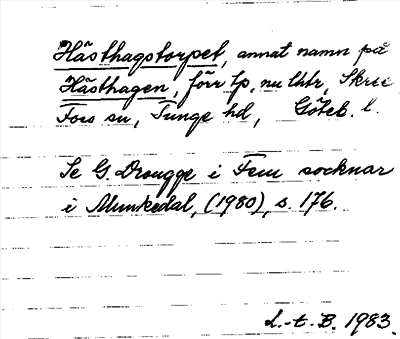 Hästhagstorpet, annat namn på
Hästhagen, förr tp, nu lht, Skree
Foss sn, Tunge hd, Göteb. l.
Se G. Drougge i Fem socknar
i Munkedal, (1980), s. 176.
L.-E. B. 1983.